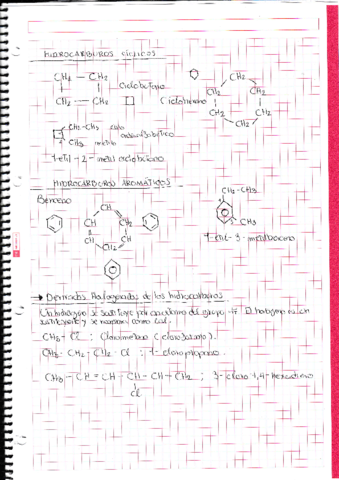 HIDROCARBUROS CÍCLICOS
CH2 — CH2
Ciclobutano
CH2 — CH2
Ciclohexano
CH2
CH2 CH2
CH2 CH2
CH2
CH2-CH3 etilo
CH3 metilo
1-etil-2-metil ciclobutano
HIDROCARBUROS AROMÁTICOS
Benceno
CH2-CH3
CH3
1-etil-3-metilbenceno
→ Derivados Halogenados de los hidrocarburos
Un hidrógeno se sustituye por un átomo del grupo 17. El halógeno es un
sustituyente y se nombra como tal.
CH3-Cl : Clorometano
CH3-CH2-CH2-Cl : 1-cloropropano.
CH3-CH=CH-CH-CH=CH2 ; 3-cloro-1,4-hexadieno
Cl